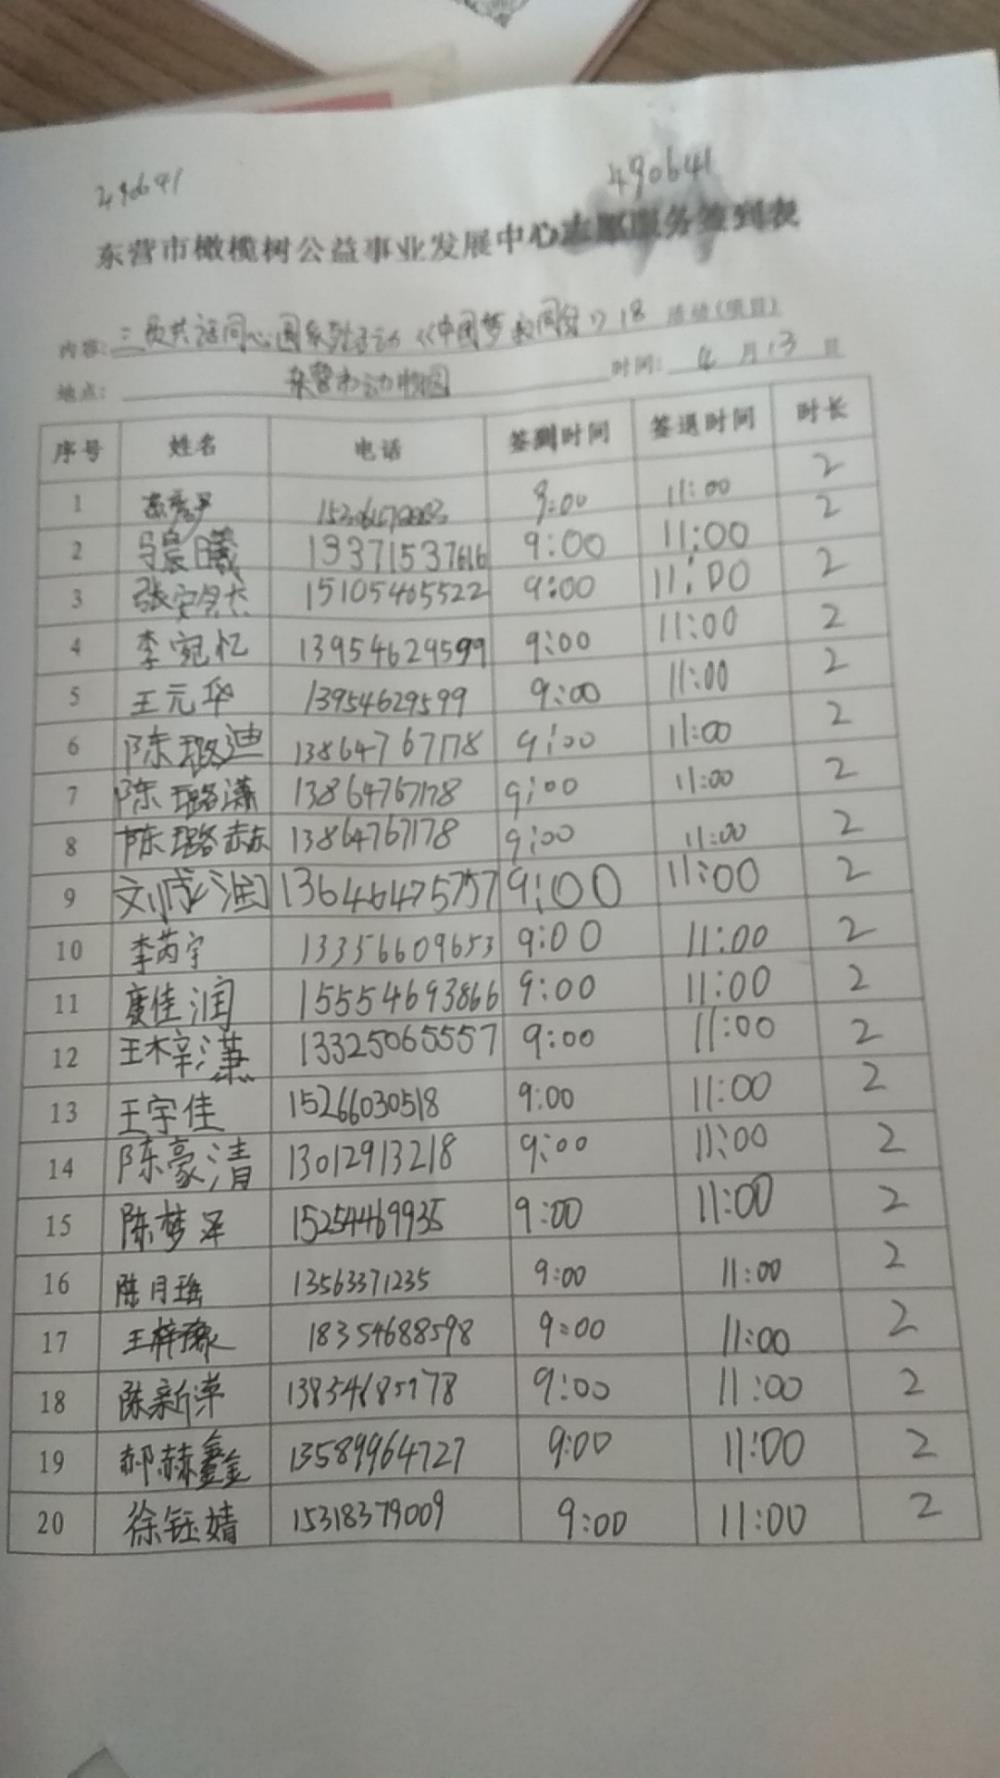 490641
490641
东营市橄榄树公益事业发展中心志愿服务签到表
内容: 三 共话同心圆系列活动《中国梦 》18 活动(项目)
地点: 东营市动物园 时间: 4 月 13 日
序号 姓名 电话 签到时间 签退时间 时长
1 9:00 11:00 2
2 马晨曦 13371537616 9:00 11:00 2
3 张 15105465522 9:00 11:00 2
4 李宛忆 13954629599 9:00 11:00 2
5 王元华 13954629599 9:00 11:00 2
6 陈璐迪 13864767178 9:00 11:00 2
7 陈璐潇 13864767178 9:00 11:00 2
8 陈璐赫 13864767178 9:00 11:00 2
9 刘成润 13646475757 9:00 11:00 2
10 李芮宇 13356609653 9:00 11:00 2
11 佳润 15554693866 9:00 11:00 2
12 王梓潇 13325065557 9:00 11:00 2
13 王宇佳 15266030518 9:00 11:00 2
14 陈豪清 13012913218 9:00 11:00 2
15 陈梦泽 15254469935 9:00 11:00 2
16 陈月瑶 13563371235 9:00 11:00 2
17 王梓豫 18354688598 9:00 11:00 2
18 陈新萍 9:00 11:00 2
19 郝赫鑫 13589964727 9:00 11:00 2
20 徐钰婧 15318379009 9:00 11:00 2